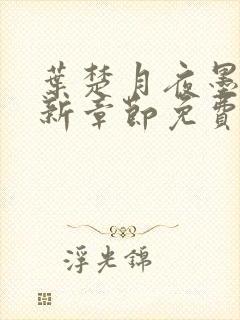 葉楚月夜墨
新章節免費
浮光錦